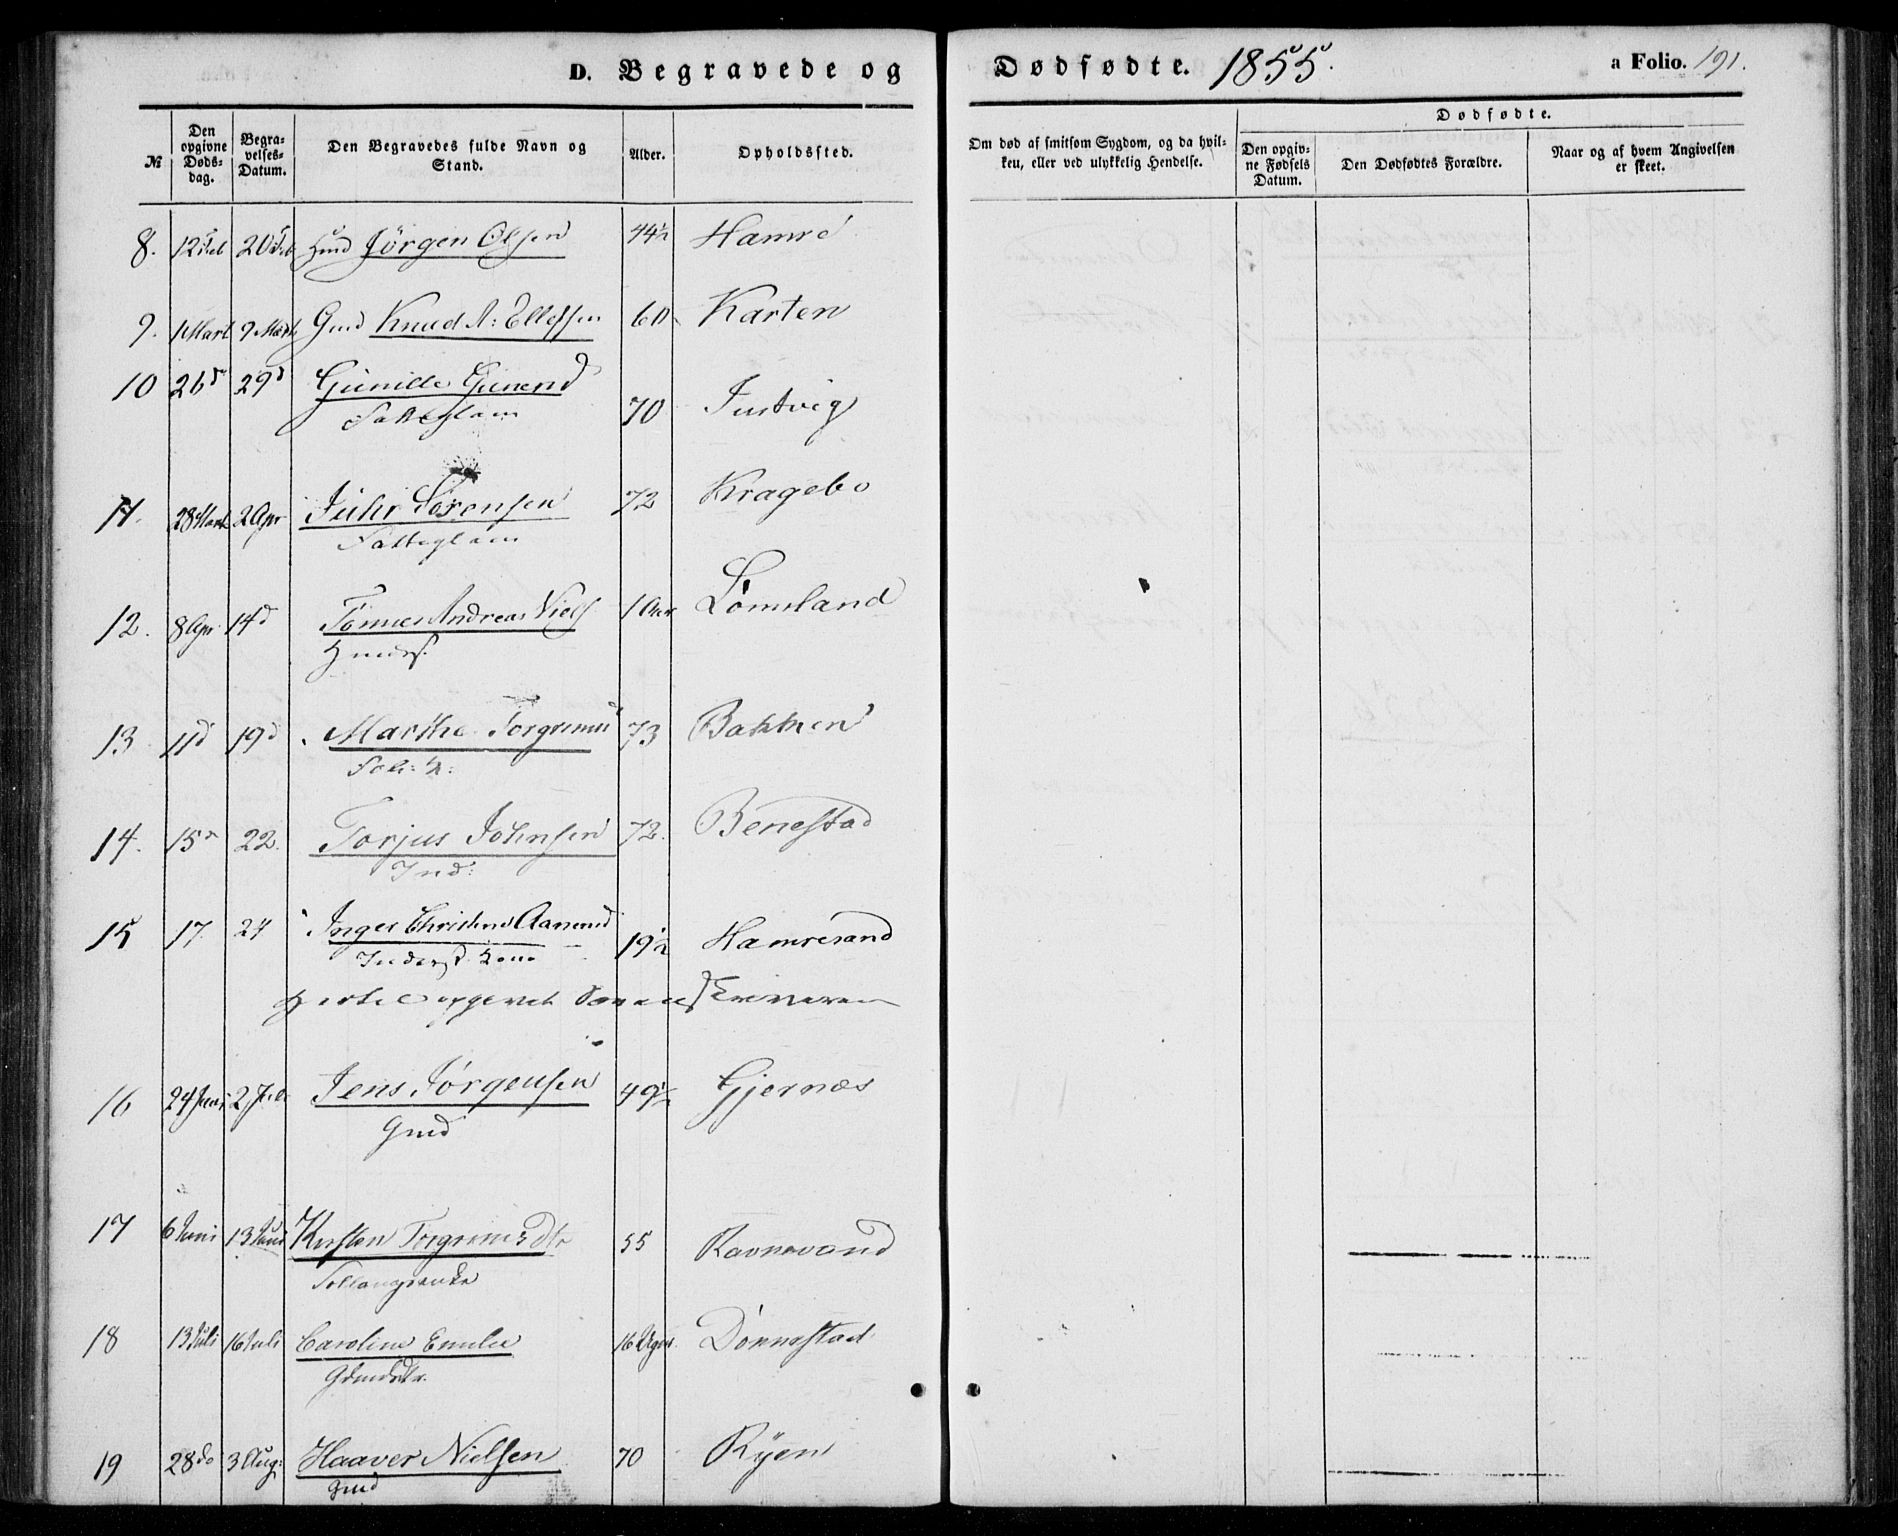 D. Begravede og Dødfødte. 1855. a Folio. 191.
№ Den opgivne Døds-dag. Begra-velses-Datum. Den Begravedes fulde Navn og Stand. Alder. Opholdssted. Om død af smitsom Sygdom, og da hvil-ken, eller ved ulykkelig Hendelse. Dødfødte. Den opgiv-ne Fødsels Datum. Den Dødfødtes Forældre. Naar og af hvem Angivelsen er skeet.
8. 12 Feb 20 Feb Jörgen Olsen 44½ Hamre
9. 1 Mart 9 Mart Gmd Knud A: Ellefsen 60 Karten
10 26 d 29 d Gunille Gunend 70 Justvig
Fattiglam
11. 28 Mart 2 Apr Sörensen 72 Kragebo
Fattiglam
12. 8 Apr 14 d Tönnes Andreas Niels 1 Aar Lömsland
13 11 d 19 d Marthe Torgrims 73 Bakken
14. 15 d 22. Torjus Johnsen 72. Benestad
Ind:
15 17. 24 Inger Christine Aanend 19½ Hamresand
Inderst Kone
Hertil opgivet
16 24 Juni 2 Juli Jens Jörgensen 49½ Gjernæs
Gmd
17 6 Juni 13 Juni Kirsten Torgrims Dtr 55 Ravnevand
18 13 Juli 16 Juli Caroline Emilie 16 Uger Dönnestad
19 28 do 3 Aug: Haaver Nielsen 70 Ryen
Gmd